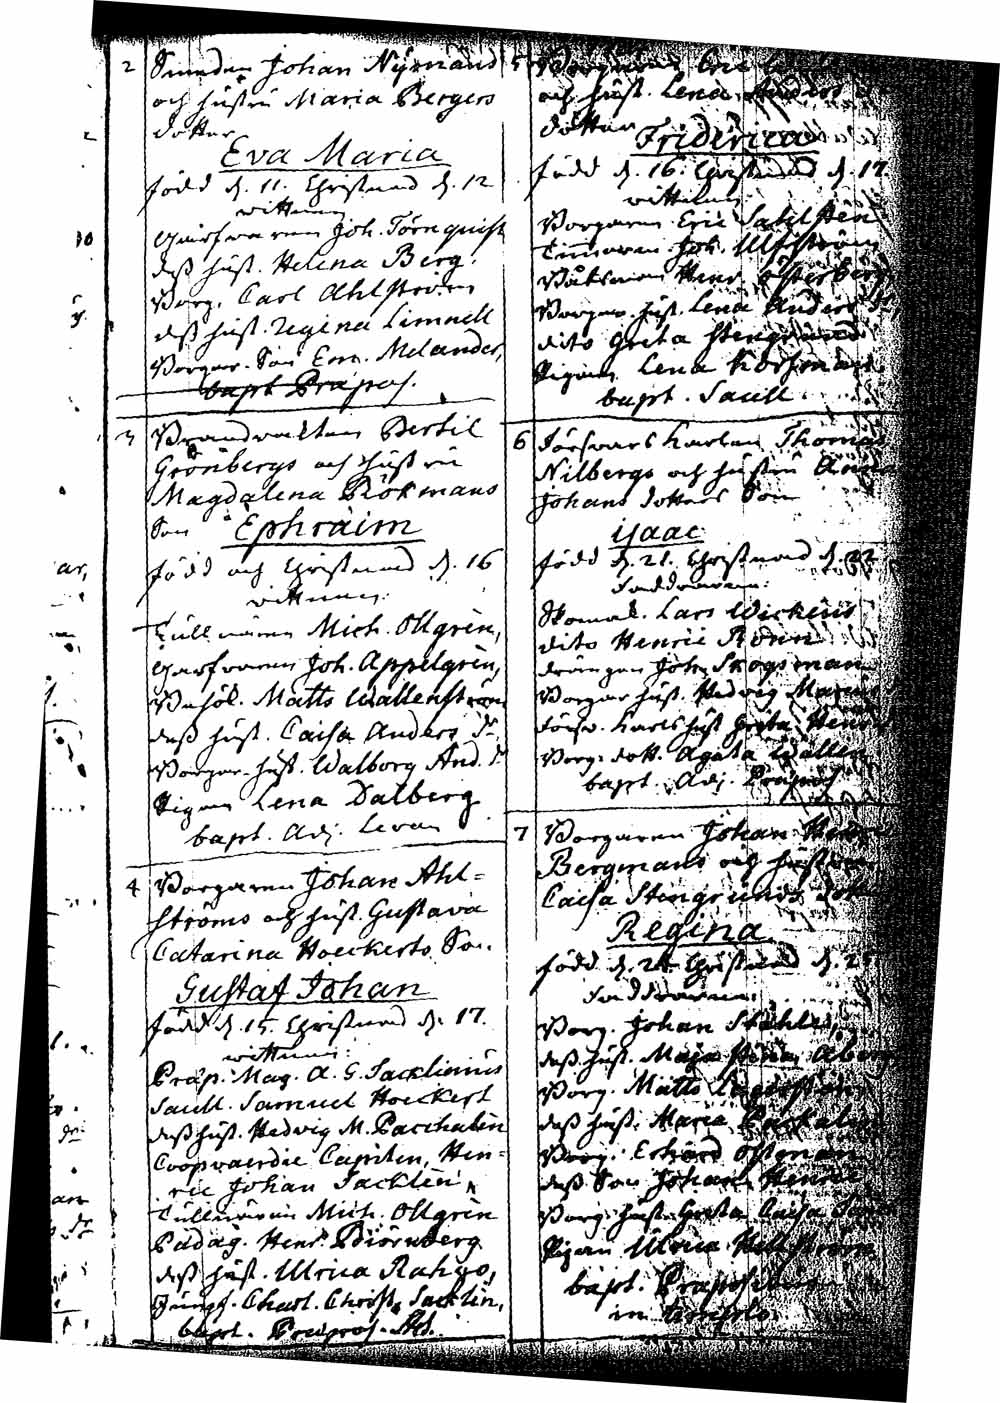 2 Smeden Johan Nÿmans
och hustru Maria Bergers
dotter
Eva Maria
född d. 11. Christnad d. 12
vittnen
Garfvaren Joh. Törnquist
deß hust. Helena Berg.
Borg. Carl Ahlström
deß hust. Regina Limnell
Borgar. Son Em. Melander,
bapt. Præpos.
3 Brandvakten Bertil
Grönbergs och hustru
Magdalena Rökmans
Son Ephraim
född och Christnad d. 16
vittnen:
Tullnären Mich. Ollgrén,
Garfvaren Joh. Appelgrén,
Matts Wallenström
deß hust. Caisa Anders dr.
Borgar-hust. Walborg And. dr
Pigan Lena Dalberg
bapt. Adj. Levan
4 Borgaren Johan Ahl=
ströms och hust. Gustava
Catarina Hoeckerts Son.
Gustaf Johan
född d. 15. Christnad d. 17.
vittnen:
Præp. Mag. A. G. Sacklinius
Sacell. Samuel Hoeckert
deß hust. Hedvig M. Paschalin
Coopvaerdie Capiten, Hen=
ric Johan Sacklén
Tullnären Mich. Ollgrén
Pädag. Henr. Biörnberg
deß hust. Ulrica Rahgo,
Jungf. Charl. Christ. Sacklin,
bapt. Præpos.
5 Borgaren Eric
och hust. Lena Anders
dotter
Friderica
född d. 16. Christnad d. 17
vittnen
Borgaren Eric Sahlstén
Timmerm. Joh. Ulfström
Båtsman Henr. Österberg
Borgar. hust. Lena Anders dr
dito Greta Stengrund
Pigan Lena Korsman
bapt. Sacell
6 Försvars Karlen Thomas
Nilbergs och hustru Anna
Johans dotters Son
Isaac
född d. 21. Christnad d. 22
Faddrarne:
Skomak. Lars Wickeus
dito Henric Rönn
drängen Joh. Skogsman
Borgar hust. Hedvig Marcus
försv. Karls hust Greta Henr.
Borg. dott. Agata Wallen
bapt. Adj.
7 Borgaren Johan Henr.
Bergmans och hustru
Caisa Stengrunds dotter
Regina
född d. 24 Christnad d. 25
Faddrarne
Borg. Johan Ståhle,
deß hust. Maja Stina Åberg
Borg. Matts Lagerström
deß hust. Maria Paskalin
Borg. Erhard Östman
deß Son Johan Henric
Borg. hust. Greta Caisa
Pigan Ulrica Hellström
bapt. Præpositus
in templo